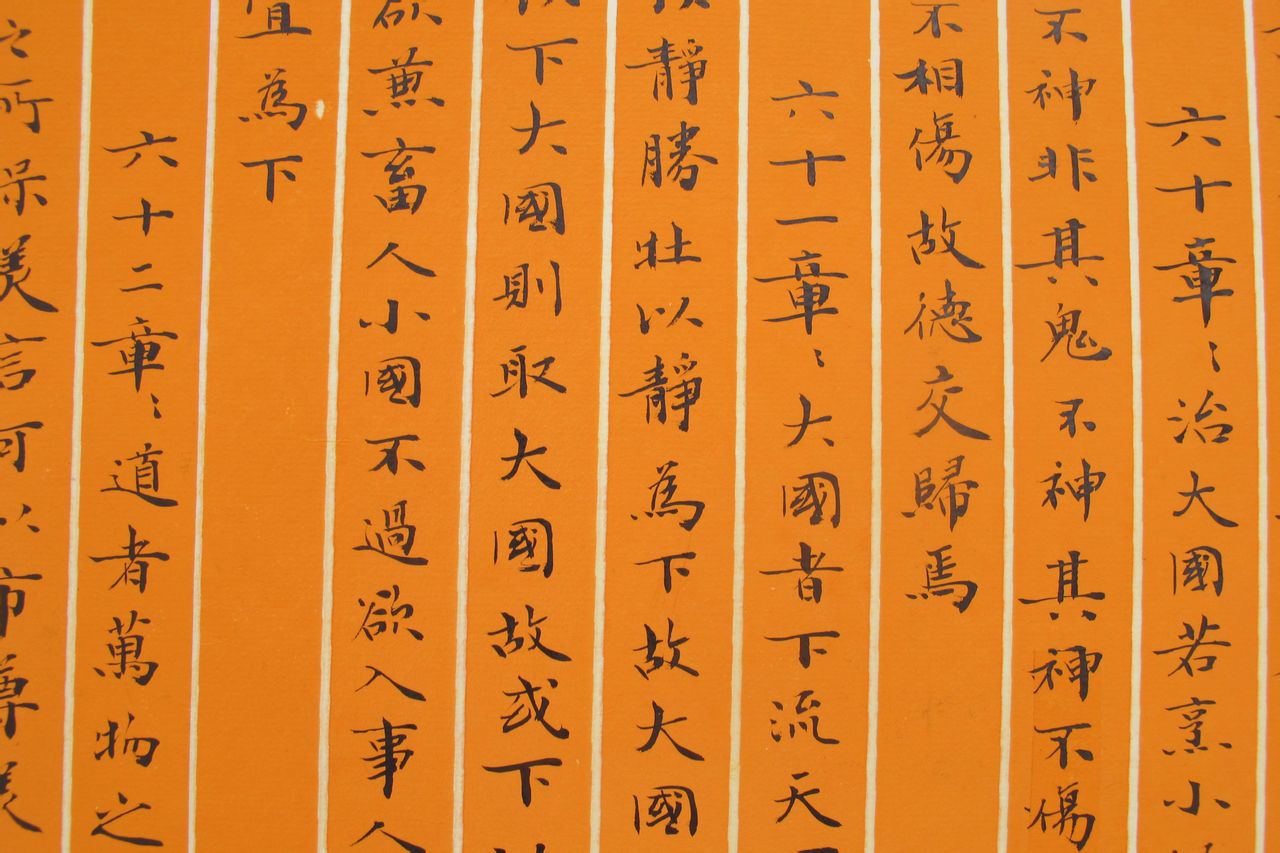 六十章〻治大國若烹小
不神非其鬼不神其神不傷
不相傷故德交歸焉
六十一章〻大國者下流天
靜勝牡以靜為下故大國
下大國則取大國故或下
欲兼畜人小國不過欲入事人
宜為下
六十二章〻道者萬物之
之所保美言可以市尊美